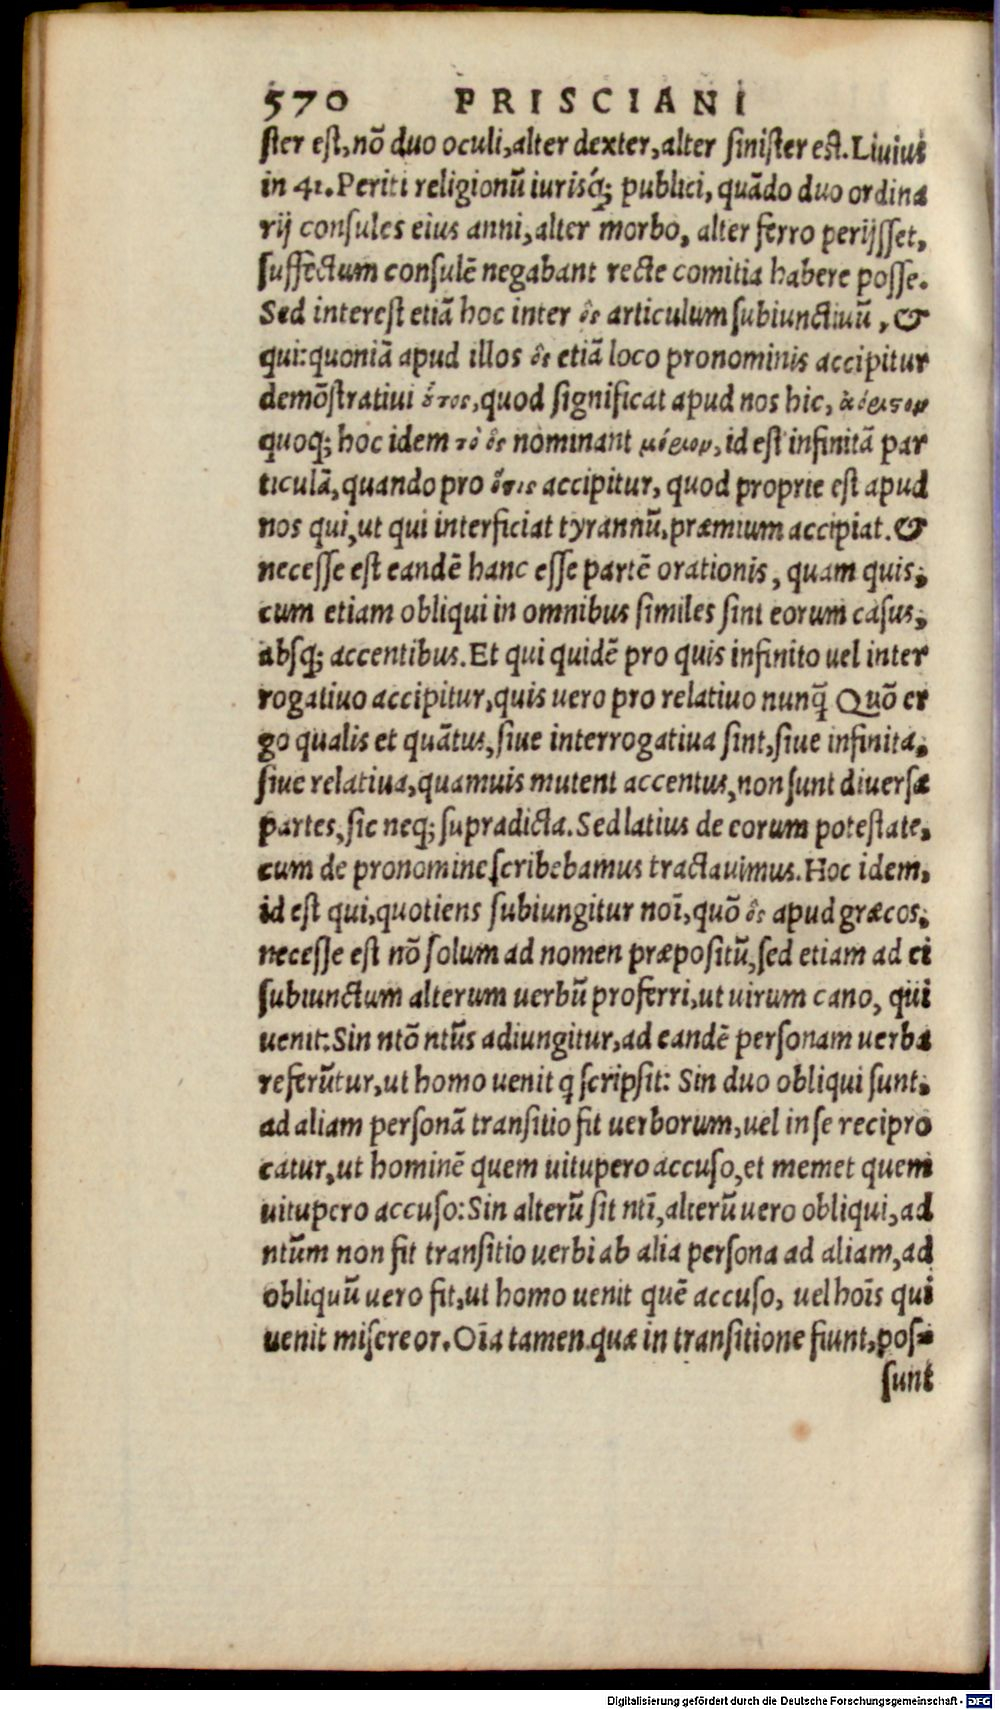 570 PRISCIANI
ster est, nõ duo oculi, alter dexter, alter sinister est. Liuius
in 41. Periti religionũ iurisq; publici, quãdo duo ordina
rij consules eius anni, alter morbo, alter ferro perijsset,
suffectum consulẽ negabant recte comitia habere posse.
Sed interest etiã hoc inter ὃς articulum subiunctiuũ, &
qui: quoniã apud illos ὃς etiã loco pronominis accipitur
demõstratiui οὗτος, quod significat apud nos hic, ἀόριστον
quoq; hoc idem τὸ ὃς nominant μόριον, id est infinitã par
ticulã, quando pro ὅστις accipitur, quod proprie est apud
nos qui, ut qui interficiat tyrannũ, præmium accipiat. &
necesse est eandẽ hanc esse partẽ orationis, quam quis,
cum etiam obliqui in omnibus similes sint eorum casus,
absq; accentibus. Et qui quidẽ pro quis infinito uel inter
rogatiuo accipitur, quis uero pro relatiuo nunq̃ Quõ er
go qualis et quãtus, siue interrogatiua sint, siue infinita,
siue relatiua, quamuis mutent accentus, non sunt diuersæ
partes, sic neq; supradicta. Sed latius de eorum potestate,
cum de pronomine scribebamus tractauimus. Hoc idem,
id est qui, quotiens subiungitur noĩ, quõ ὃς apud græcos,
necesse est nõ solum ad nomen præpositũ, sed etiam ad ei
subiunctum alterum uerbũ proferri, ut uirum cano, qui
uenit: Sin ntõ ntũs adiungitur, ad eandẽ personam uerba
referũtur, ut homo uenit q̃ scripsit: Sin duo obliqui sunt,
ad aliam personã transitio fit uerborum, uel in se recipro
catur, ut hominẽ quem uitupero accuso, et memet quem
uitupero accuso: Sin alterũ sit ntĩ, alterũ uero obliqui, ad
ntũm non fit transitio uerbi ab alia persona ad aliam, ad
obliquũ uero fit, ut homo uenit quẽ accuso, uel hoĩs qui
uenit misereor. Oĩa tamen quæ in transitione fiunt, pos-
sunt
Digitalisierung gefördert durch die Deutsche Forschungsgemeinschaft - DFG